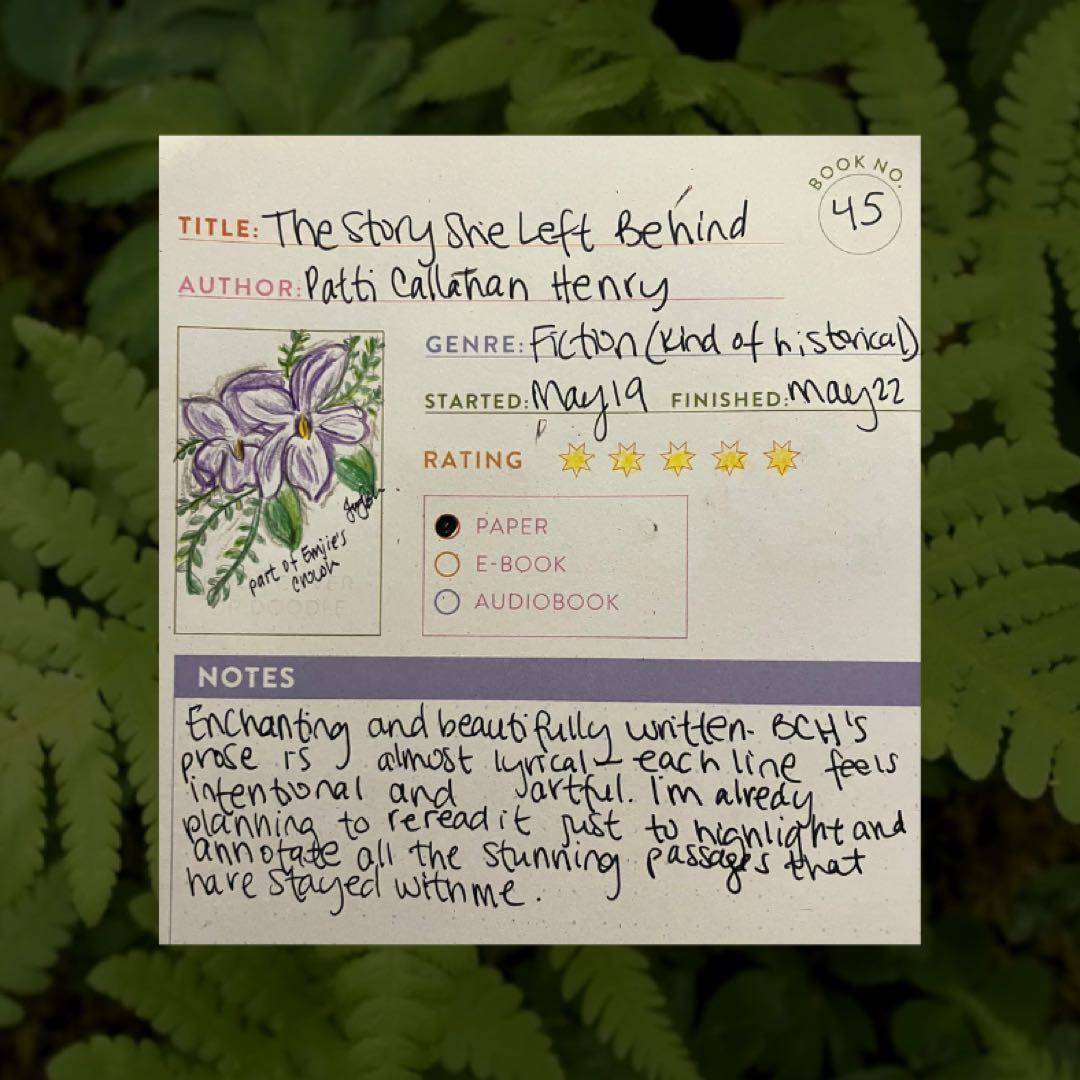 BOOK NO.
45
TITLE: The Story She Left Behind
AUTHOR: Patti Callahan Henry
GENRE: Fiction (Kind of historical)
STARTED: May 19 FINISHED: May 22
RATING
PAPER
E-BOOK
AUDIOBOOK
part of Emjie's
crown
NOTES
Enchanting and beautifully written. BCH's
prose is almost lyrical - each line feels
intentional and artful. I'm alredy
planning to reread it just to highlight and
annotate all the stunning passages that
have stayed with me.